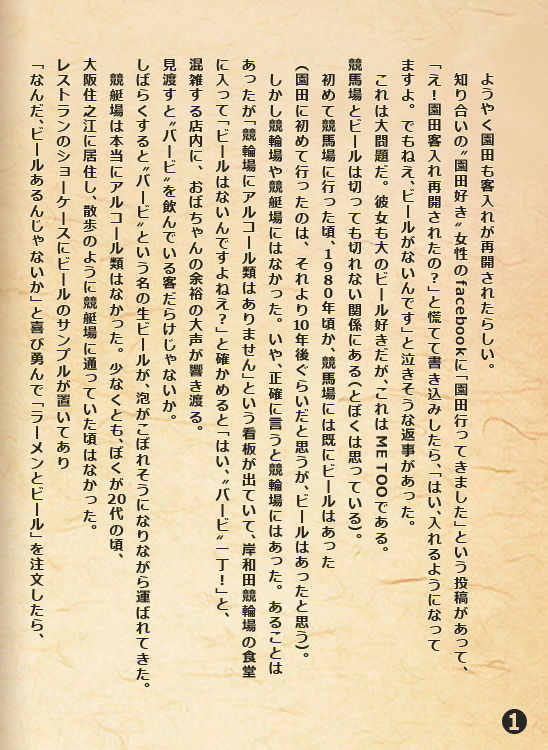 ようやく園田も客入れが再開されたらしい。
知り合いの〝園田好き〟女性のfacebookに「園田行ってきました」という投稿があって、
「え！園田客入れ再開されたの？」と慌てて書き込みしたら、「はい、入れるようになって
ますよ。でもねえ、ビールがないんです」と泣きそうな返事があった。
これは大問題だ。彼女も大のビール好きだが、これは ME TOOである。
競馬場とビールは切っても切れない関係にある（とぼくは思っている）。
初めて競馬場に行った頃、1980年頃か、競馬場には既にビールはあった
（園田に初めて行ったのは、それより10年後ぐらいだと思うが、ビールはあったと思う）。
しかし競輪場や競艇場にはなかった。いや、正確に言うと競輪場にはあった。あることは
あったが「競輪場にアルコール類はありません」という看板が出ていて、岸和田競輪場の食堂
に入って「ビールはないんですよねえ？」と確かめると「はい、〝バービ〟一丁！」と、
混雑する店内に、おばちゃんの余裕の大声が響き渡る。
見渡すと〝バービ〟を飲んでいる客だらけじゃないか。
しばらくすると〝バービ〟という名の生ビールが、泡がこぼれそうになりながら運ばれてきた。
競艇場は本当にアルコール類はなかった。少なくとも、ぼくが20代の頃、
大阪住之江に居住し、散歩のように競艇場に通っていた頃はなかった。
レストランのショーケースにビールのサンプルが置いてあり
「なんだ、ビールあるんじゃないか」と喜び勇んで「ラーメンとビール」を注文したら、
1